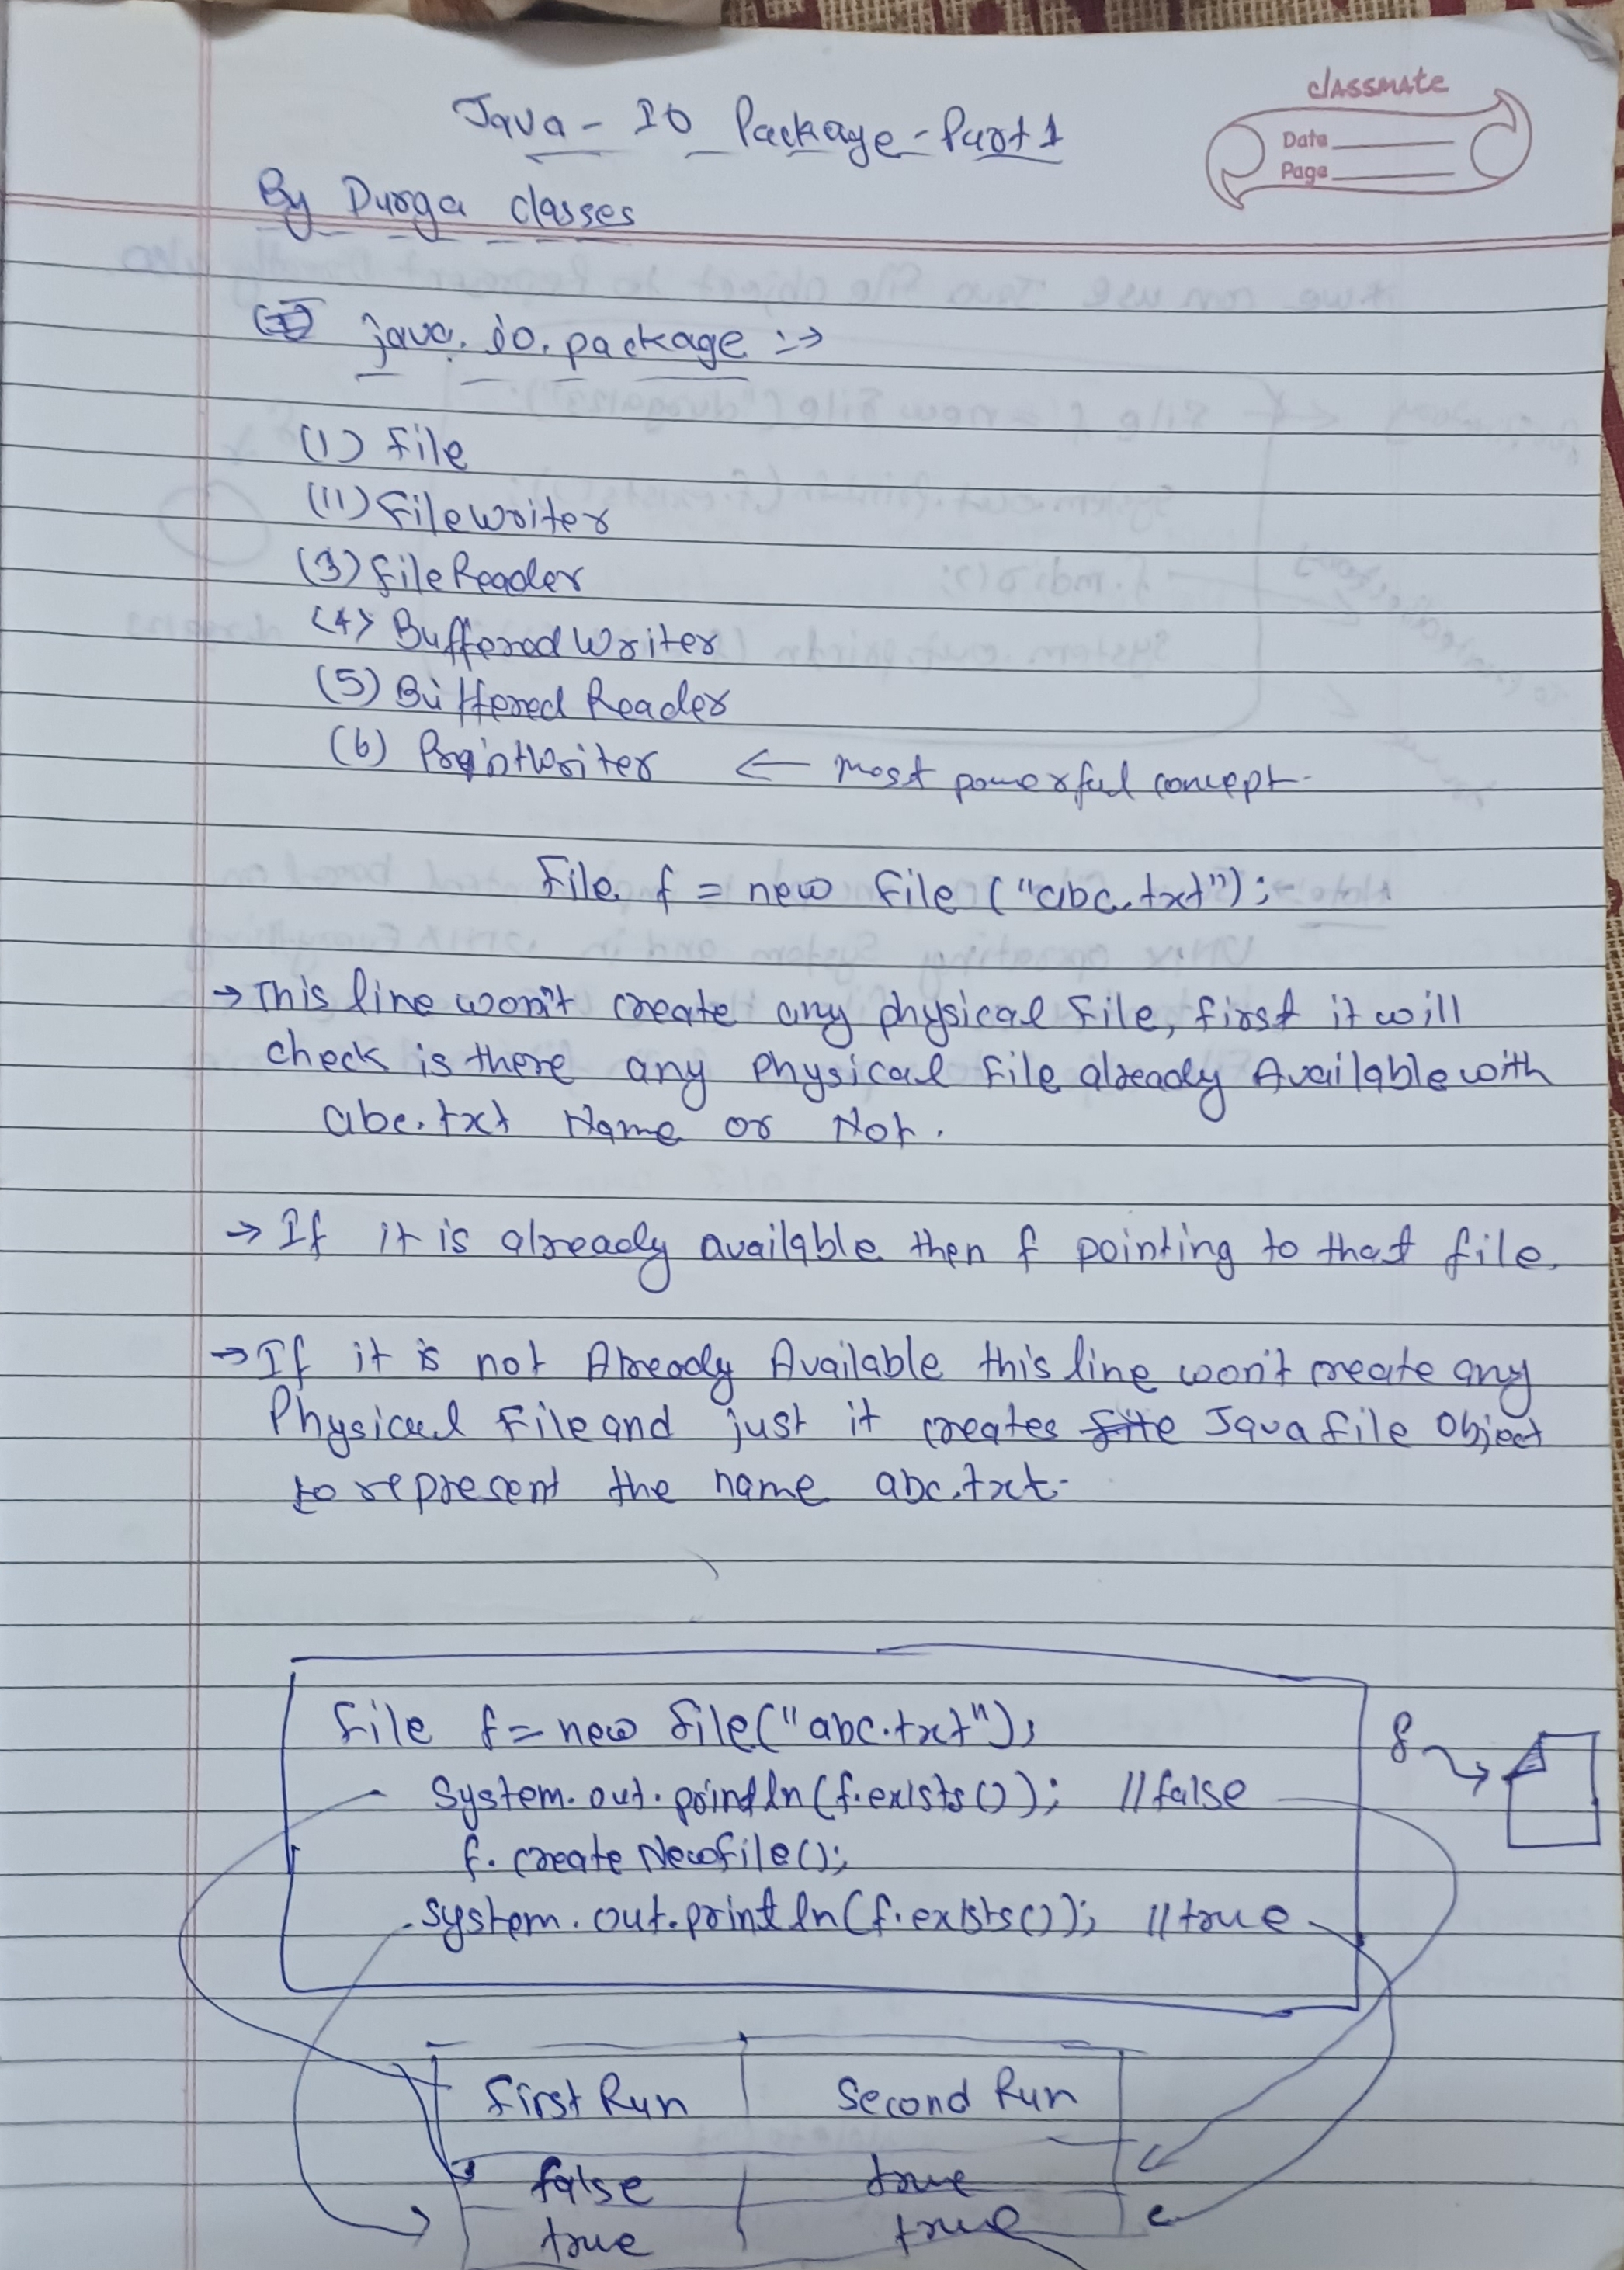 Java - IO Package - Part 1
classmate
Date
Page
By Durga classes
java. io. package :→
(1) File
(11) FileWriter
(3) FileReader
(4) BufferedWriter
(5) Buffered Reader
(6) PrintWriter ← most powerful concept.
File f = new File ("abc.txt");
→ This line won't create any physical File, first it will
check is there any Physical File already Available with
abc.txt Name or Not.
→ If it is already available then f pointing to that file.
→ If it is not Already Available this line won't create any
Physical File and just it creates file Java file Object
to represent the name abc.txt.
File f = new File("abc.txt");
System.out.println(f.exists()); //false
f
f.createNewFile();
System.out.println(f.exists()); //true
First Run Second Run
false true
true true